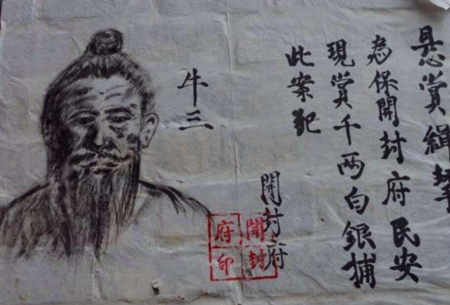 悬賞緝
為保開封府民安
現賞千两白銀捕
此案犯
開封府
開封
府印
牛三